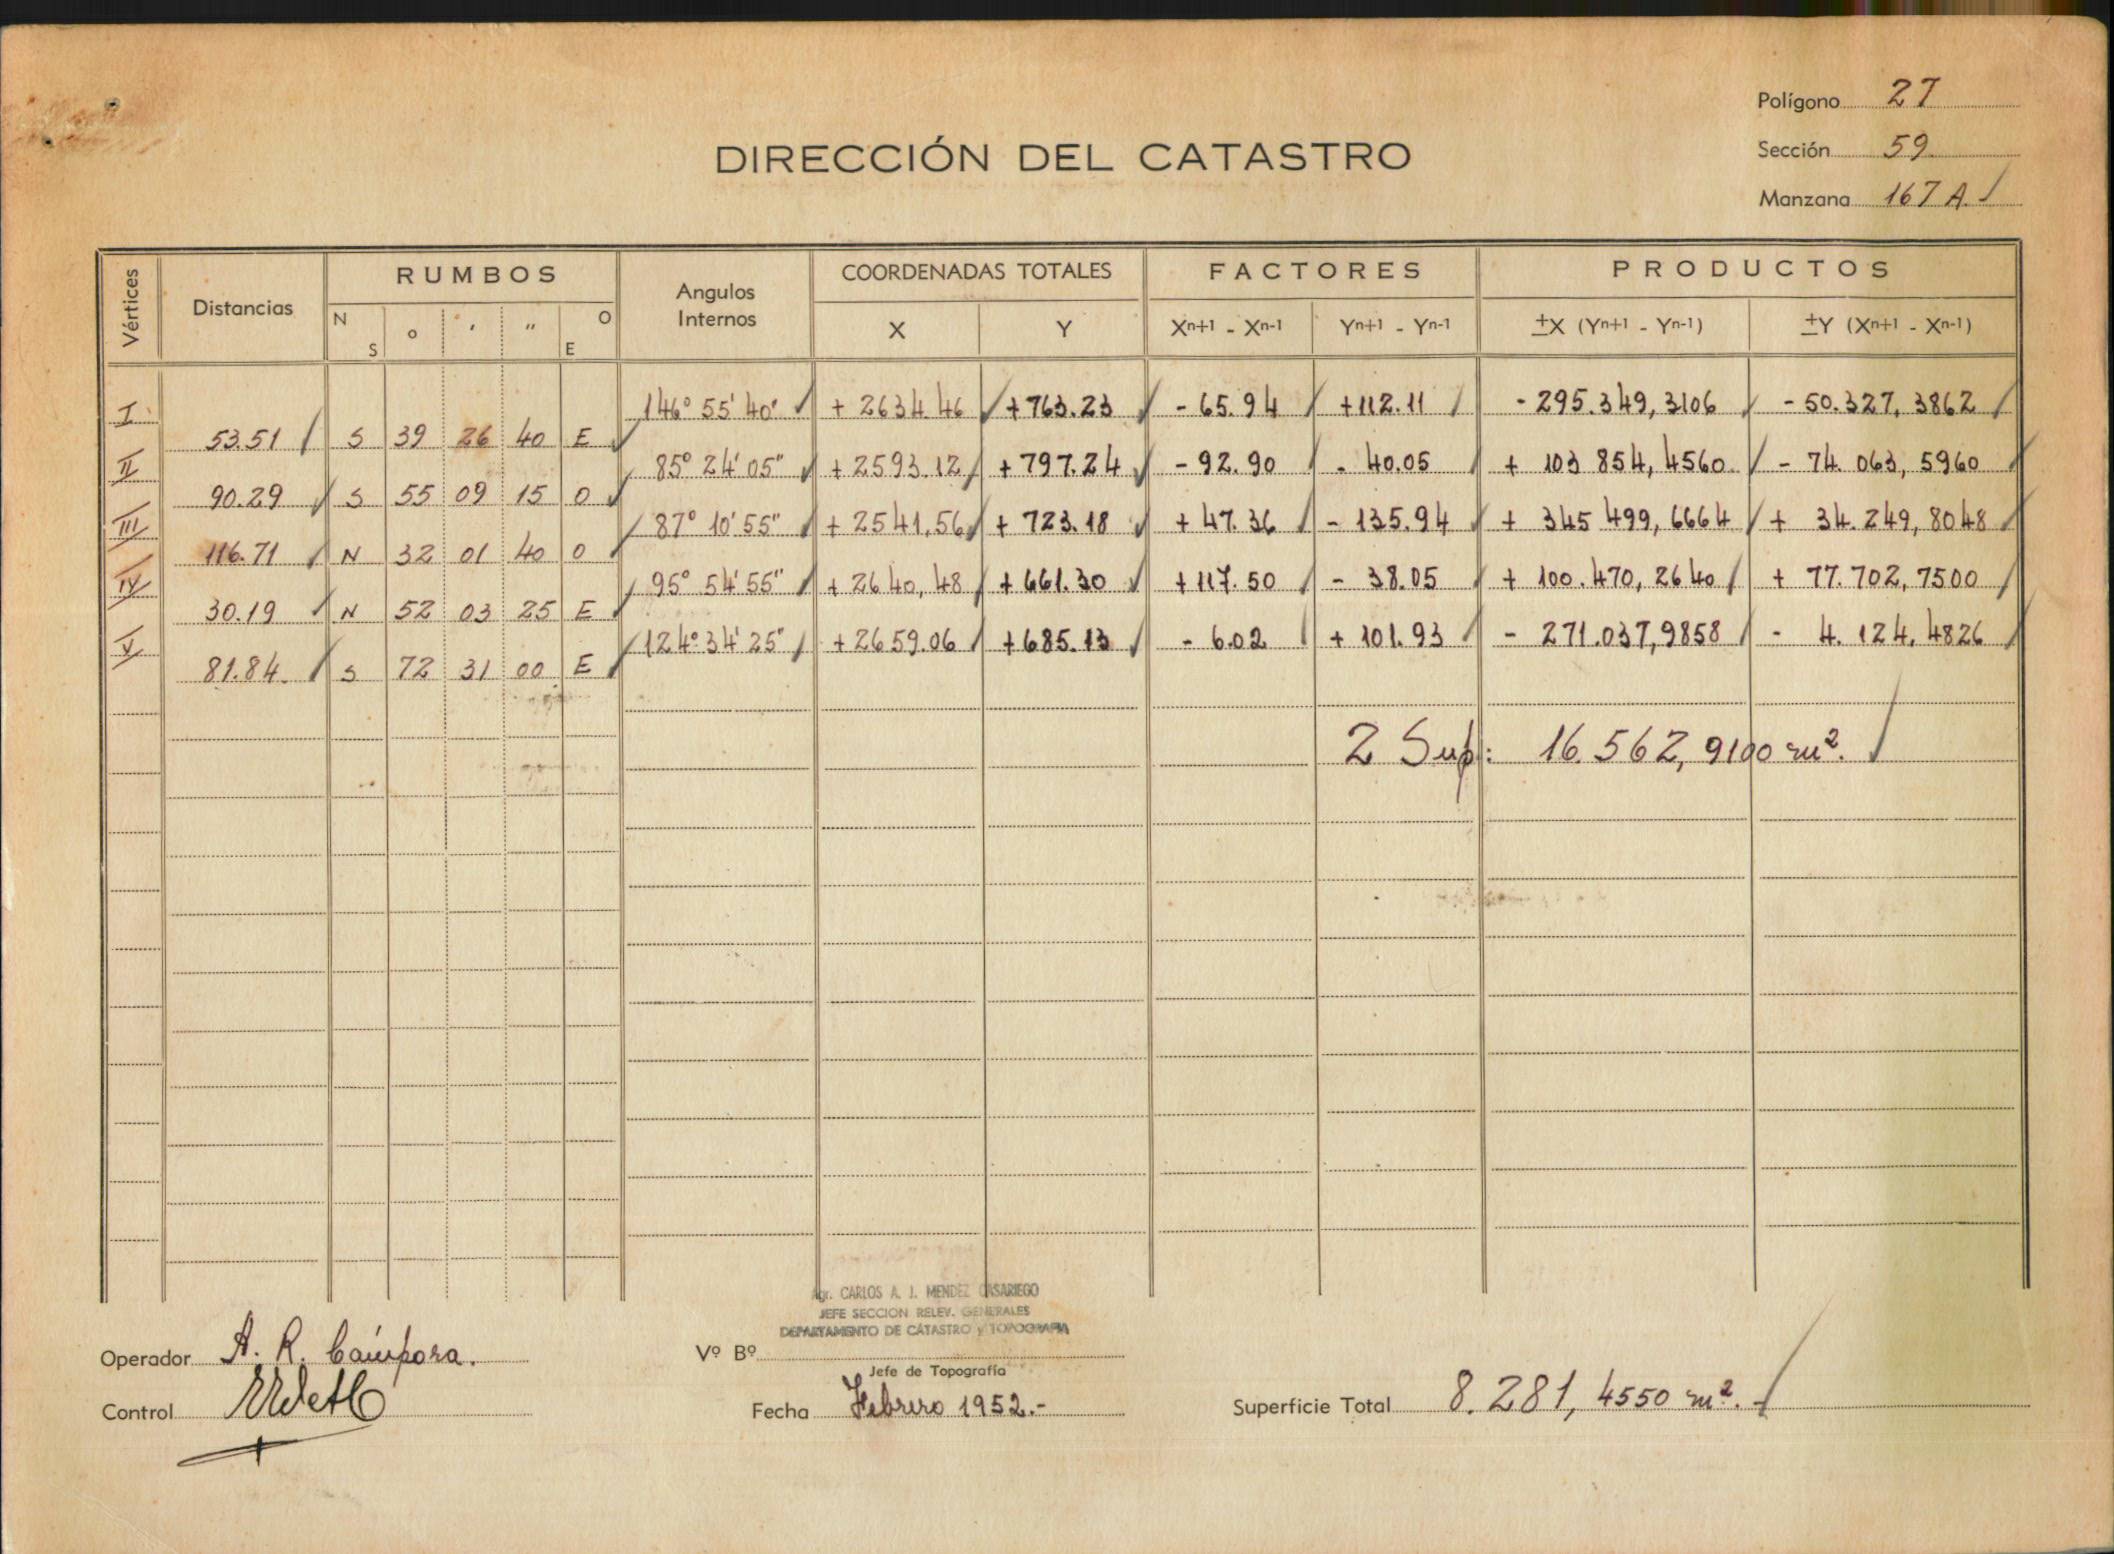 Polígono 27
DIRECCIÓN DEL CATASTRO
Sección 59
Manzana 167 A.
Vértices Distancias RUMBOS Angulos Internos COORDENADAS TOTALES FACTORES PRODUCTOS
N S ° ' " O E X Y Xn+1 - Xn-1 Yn+1 - Yn-1 ±X (Yn+1 - Yn-1) ±Y (Xn+1 - Xn-1)
I 146° 55' 40" + 2634.46 +763.23 - 65.94 +112.11 - 295.349,3106 - 50.327,3862
53.51 S 39 26 40 E
II 85° 24' 05" + 2593.12 +797.24 - 92.90 - 40.05 + 103 854,4560 - 74.063,5960
90.29 S 55 09 15 O
III 87° 10' 55" + 2541,56 + 723.18 + 47.36 - 135.94 + 345 499,6664 + 34.249,8048
116.71 N 32 01 40 O
IV 95° 54' 55" + 2640,48 + 661.30 + 117.50 - 38.05 + 100.470,2640 + 77.702,7500
30.19 N 52 03 25 E
V 124° 34' 25" + 2659.06 + 685.13 - 6.02 + 101.93 - 271.037,9858 - 4.124,4826
81.84 S 72 31 00 E
2 Sup: 16.562,9100 m².
Agr. CARLOS A. J. MENDEZ CASARIEGO
JEFE SECCION RELEV. GENERALES
DEPARTAMENTO DE CATASTRO y TOPOGRAFIA
Operador A. R. Cámpora.
Vº Bº
Jefe de Topografía
Control
Fecha Febrero 1952.-
Superficie Total 8.281,4550 m².